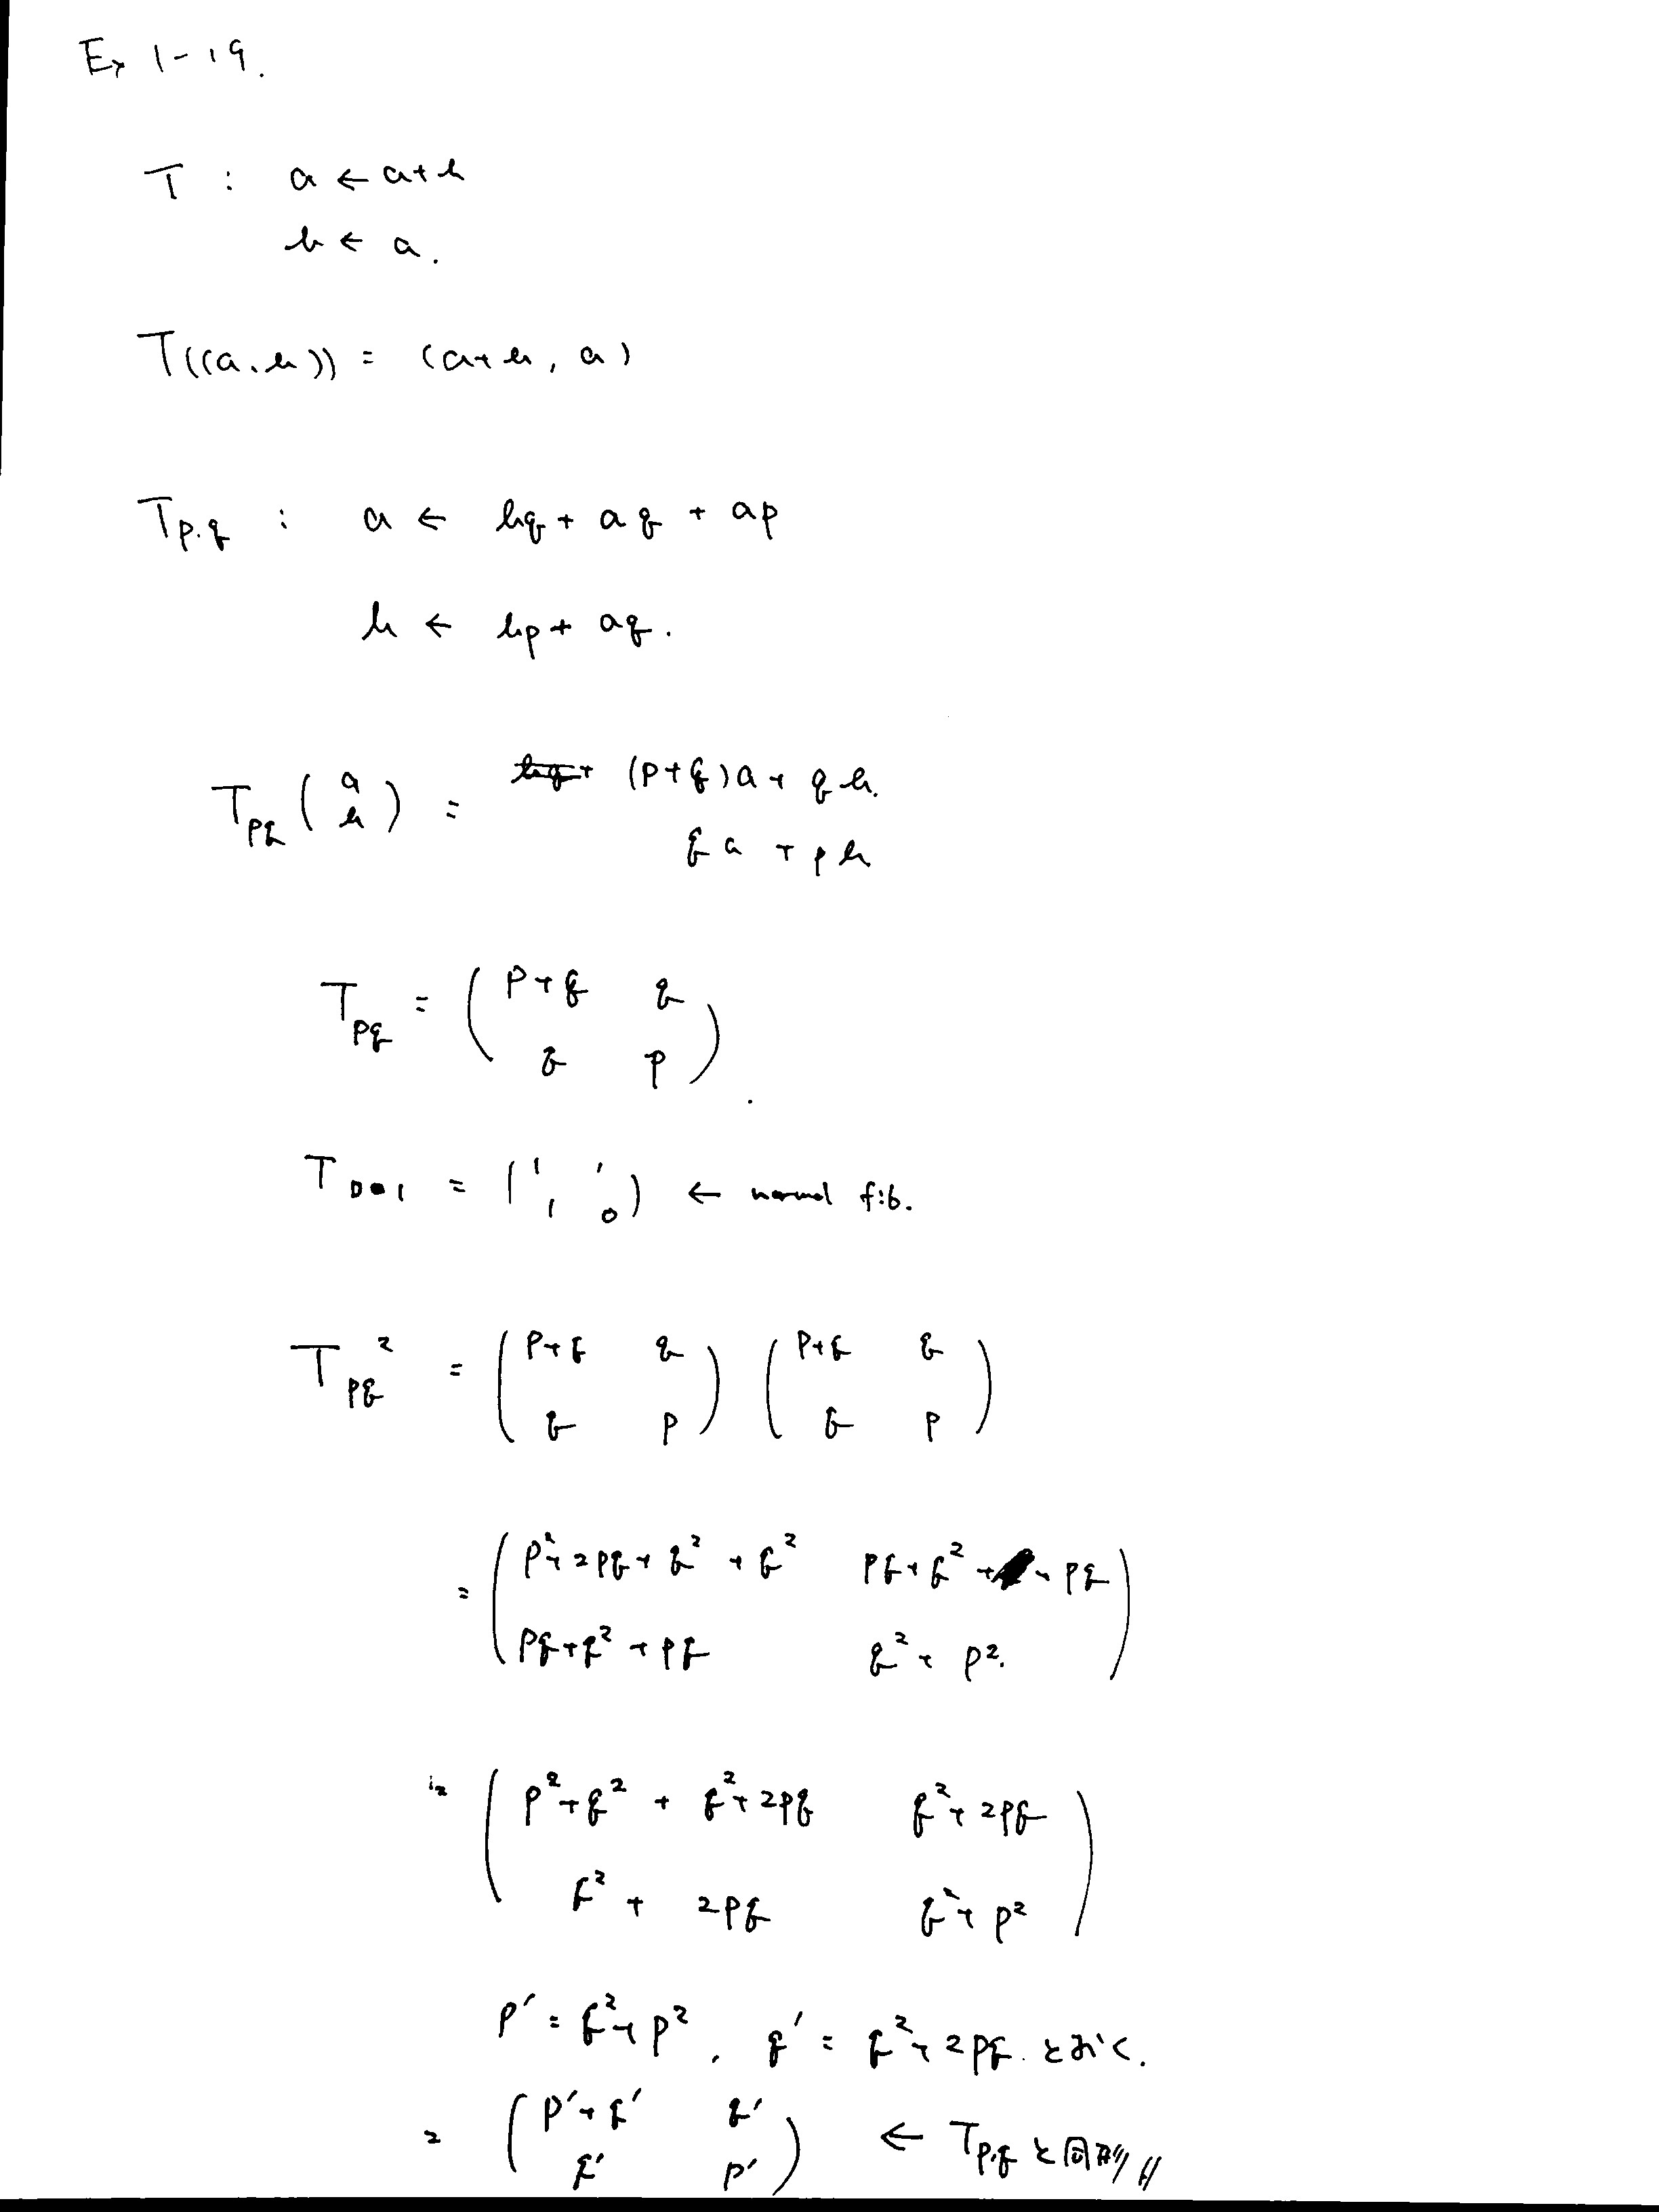 Ex 1-19.
T : a ← a+b
b ← a.
T((a,b)) = (a+b, a)
Tp.q : a ← bq + aq + ap
b ← bp + aq.
Tpq (a b) = (p+q)a + qb.
qa + pb
Tpq = (p+q q
q p).
T = (1 1
1 0) ← normal fib.
Tpq² = (p+q q) (p+q q)
(q p) (q p)
= (p²+2pq+q²+q² pq+q²+pq
pq+q²+pq q²+p².)
= (p²+q² + q²+2pq q²+2pq
q² + 2pq q²+p²)
p' = q²+p², q' = q²+2pq.とおく.
= (p'+q' q'
q' p') ← Tp.qと同形//